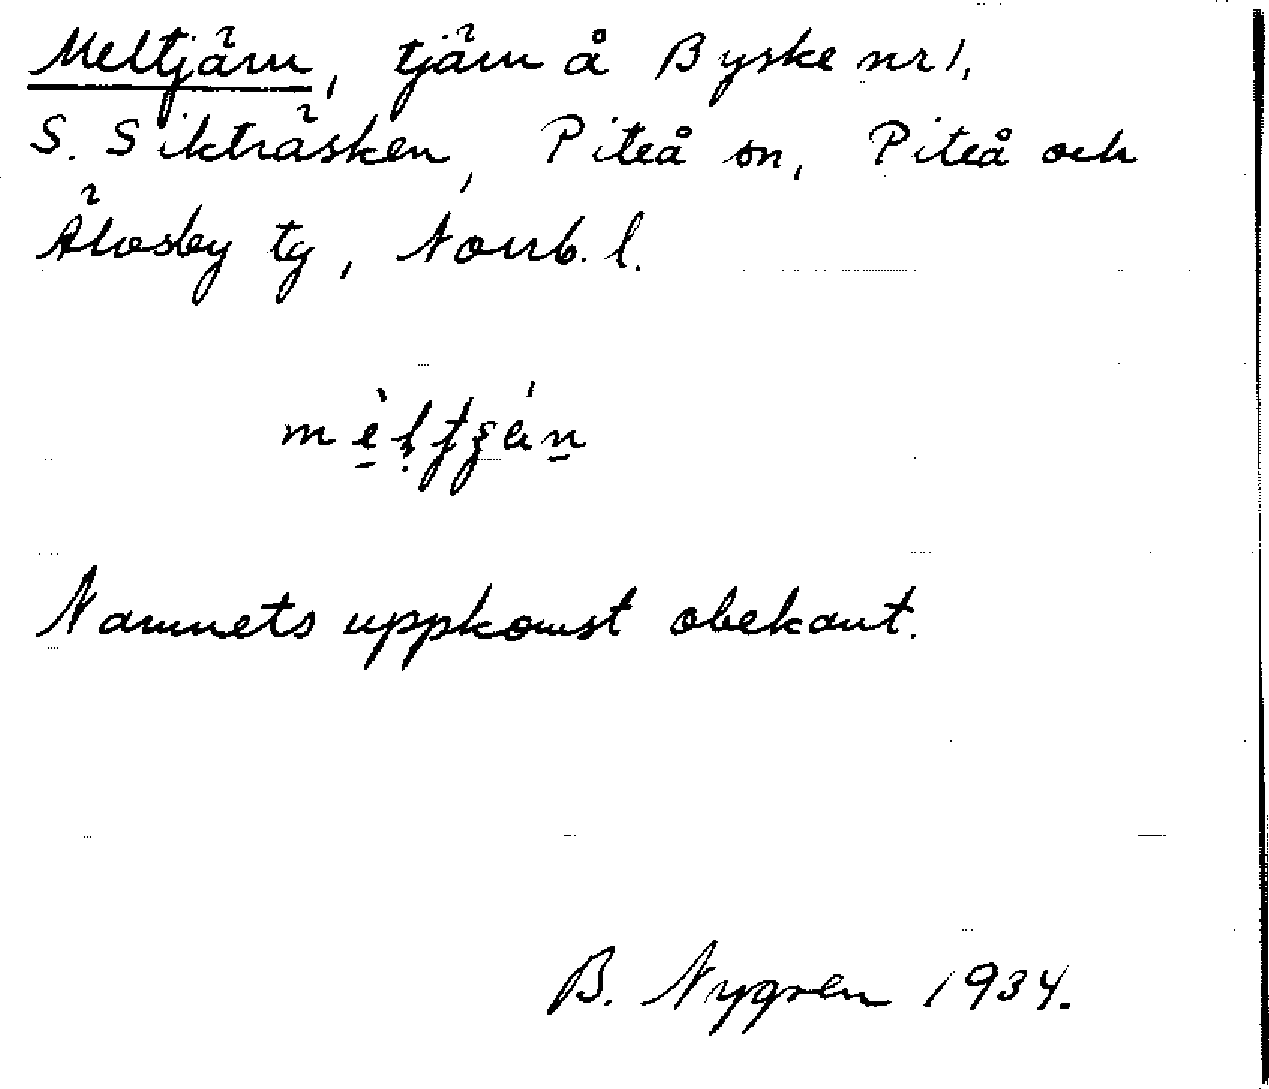 Meltjärn, tjärn å Byske nr 1,
S. Sikträsken, Piteå sn, Piteå och
Älvsby tg, Norrb. l.
Namnets uppkomst obekant.
B. Nygren 1934.